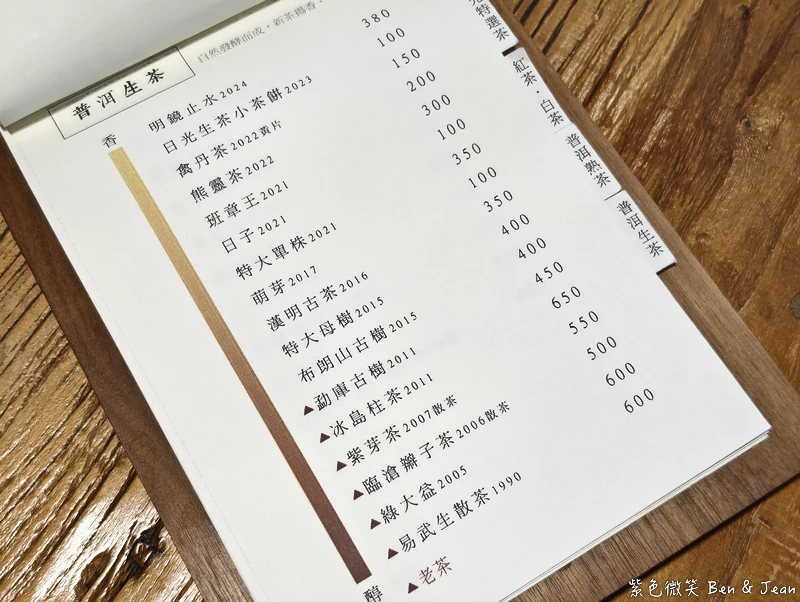 普洱生茶
自然發酵而成・新茶揚香・
香
明鏡止水2024 380
日光生茶小茶餅2023 100
禽丹茶2022黃片 150
熊靈茶2022 200
班章王2021 300
日子2021 100
特大單株2021 350
萌芽2017 100
漢明古茶2016 350
特大母樹2015 400
布朗山古樹2015 400
▲勐庫古樹2011 450
▲冰島柱茶2011 650
▲紫芽茶2007散茶 550
▲臨滄辮子茶2006散茶 500
▲綠大益2005 600
▲易武生散茶1990 600
▲老茶
醇
特選茶
紅茶・白茶
普洱熟茶
普洱生茶
紫色微笑 Ben & Jean